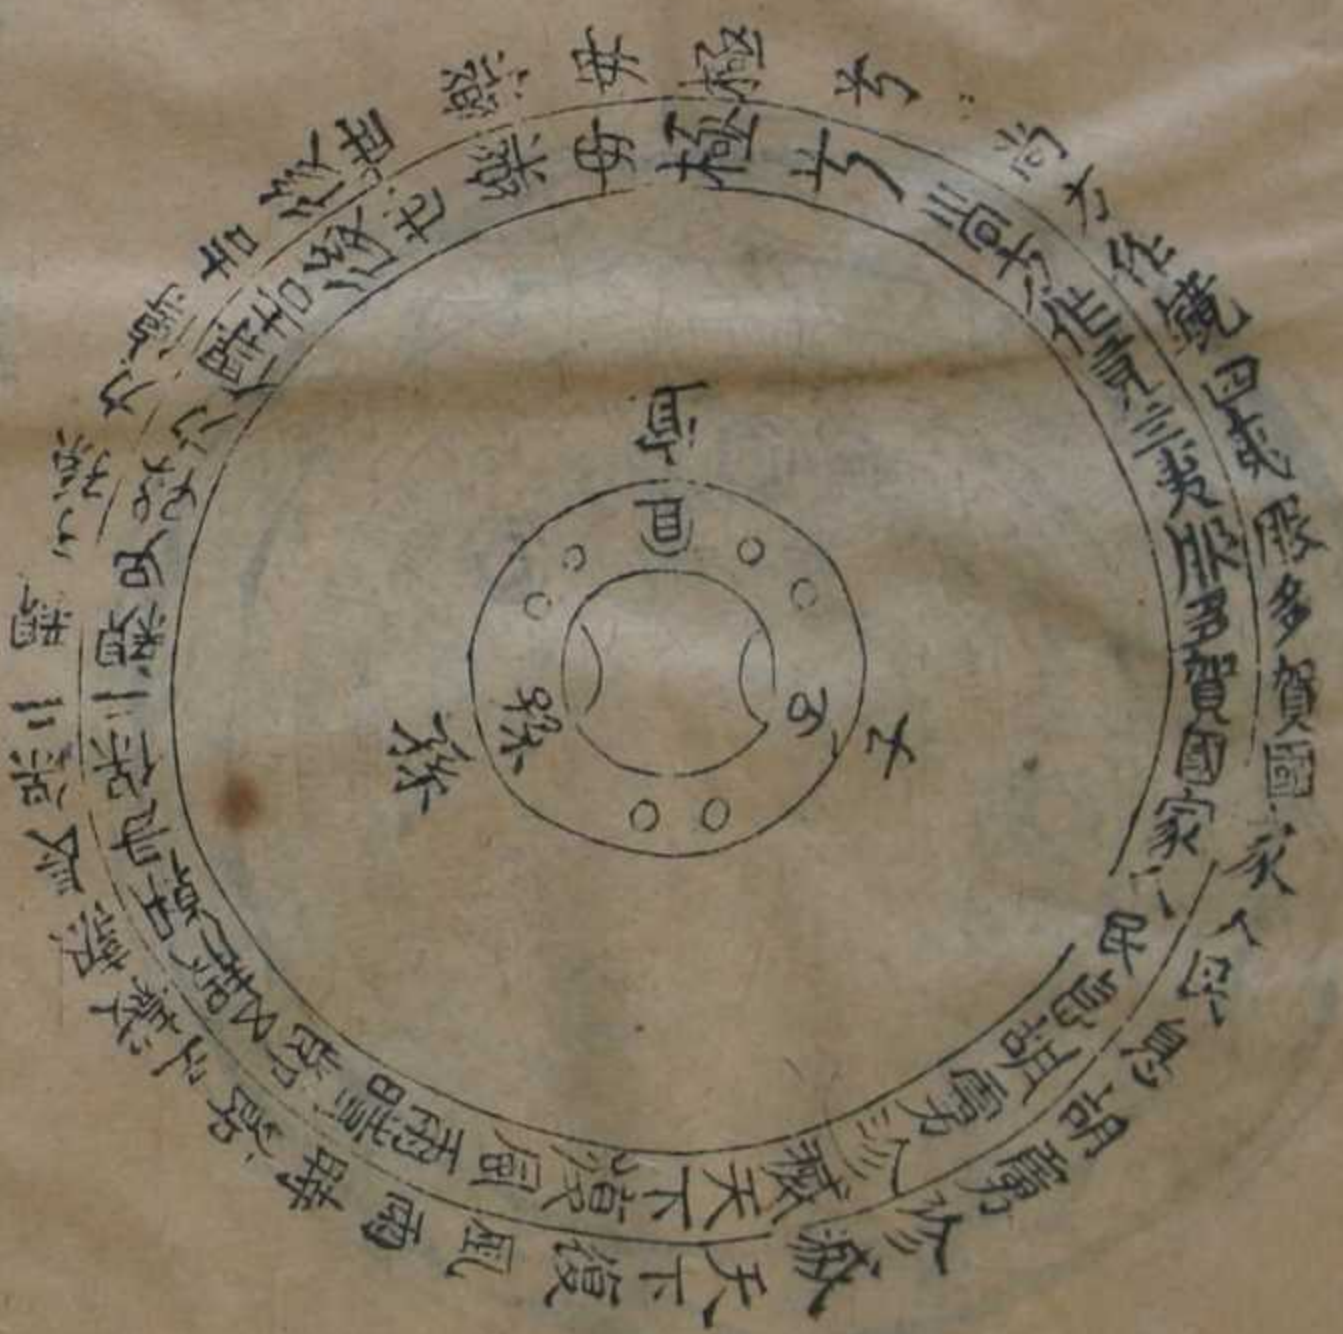 尚方作鏡四夷服多賀國家人民息胡虜殄滅天下復風雨時節五穀熟長保二親得天力傳告後世樂毋極兮
尚方作竟三夷服多賀國家人民息胡虜殄滅天下復風雨時節五穀孰長保二親得天力傳告後世樂毋極兮
宜子孫
宜子孫